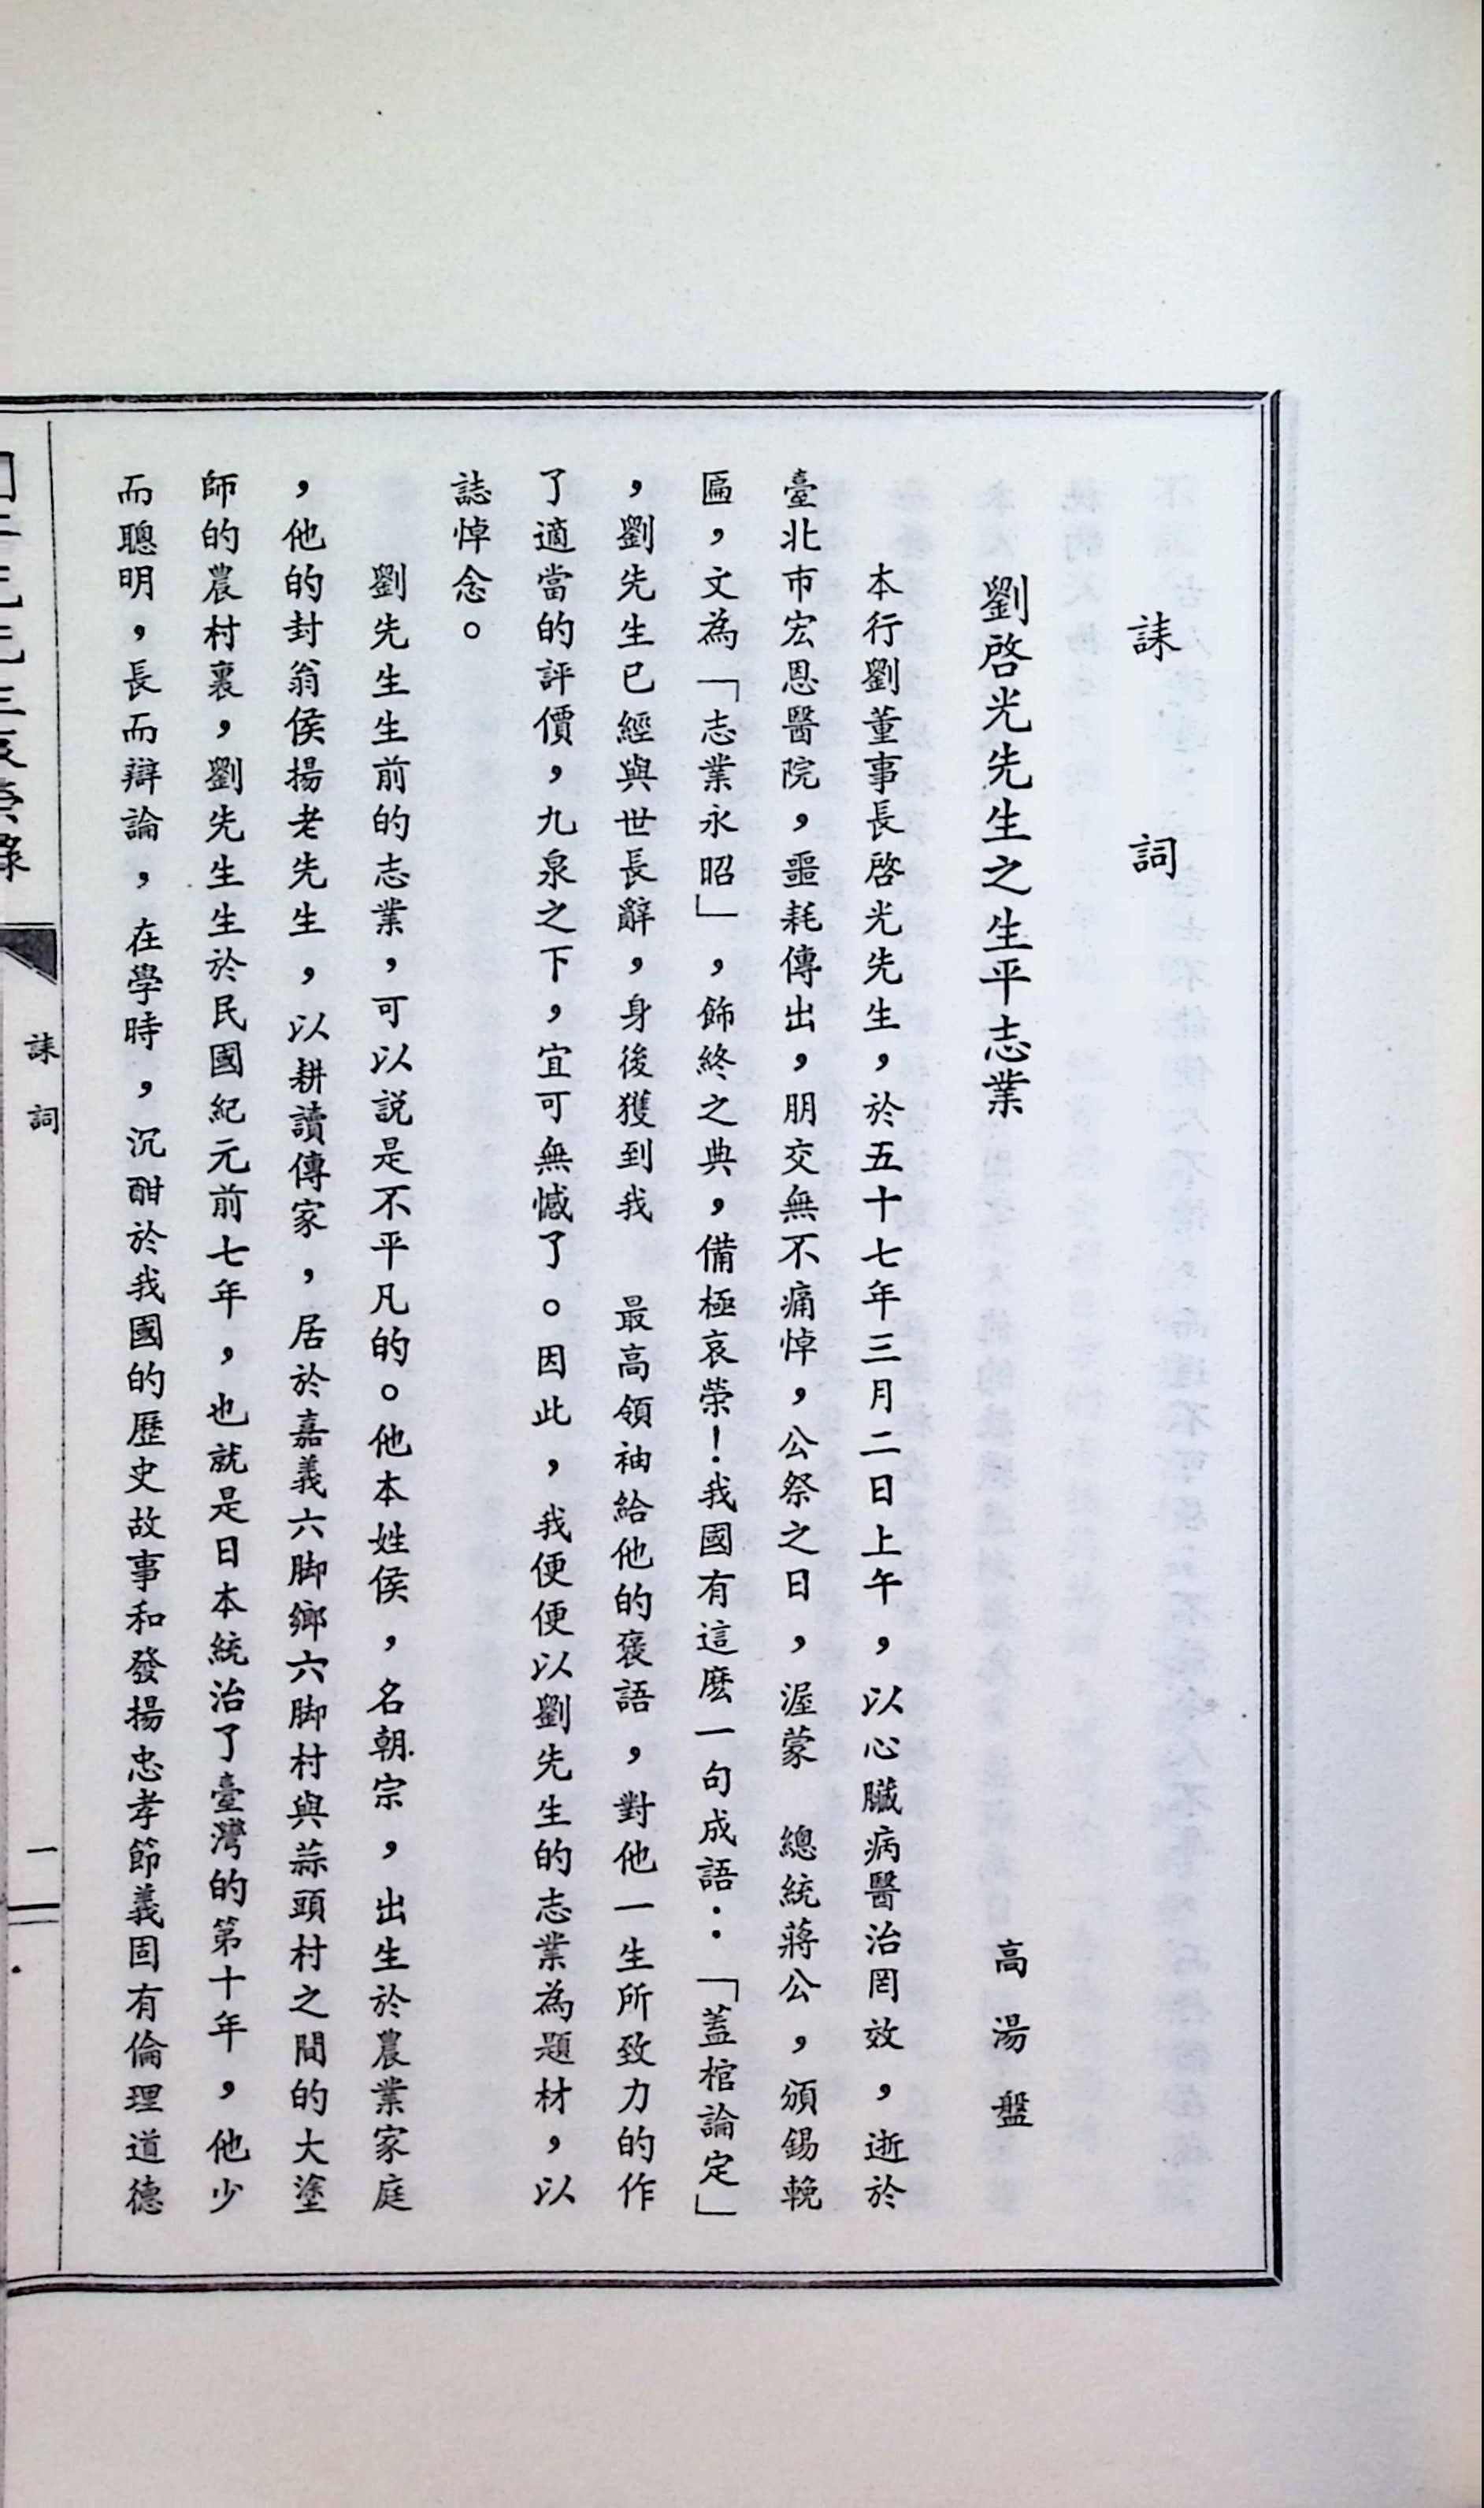 誄詞
劉啓光先生之生平志業
高湯盤
本行劉董事長啓光先生，於五十七年三月二日上午，以心臟病醫治罔效，逝於
臺北市宏恩醫院，噩耗傳出，朋交無不痛悼，公祭之日，渥蒙　總統蔣公，頒錫輓
匾，文為「志業永昭」，飾終之典，備極哀榮！我國有這麽一句成語：「蓋棺論定」
，劉先生已經與世長辭，身後獲到我　最高領袖給他的褒語，對他一生所致力的作
了適當的評價，九泉之下，宜可無憾了。因此，我便便以劉先生的志業為題材，以
誌悼念。
劉先生生前的志業，可以説是不平凡的。他本姓侯，名朝宗，出生於農業家庭
，他的封翁侯揚老先生，以耕讀傳家，居於嘉義六脚鄉六脚村與蒜頭村之間的大塗
師的農村裏，劉先生生於民國紀元前七年，也就是日本統治了臺灣的第十年，他少
而聰明，長而辯論，在學時，沉酣於我國的歷史故事和發揚忠孝節義固有倫理道德
誄詞
一